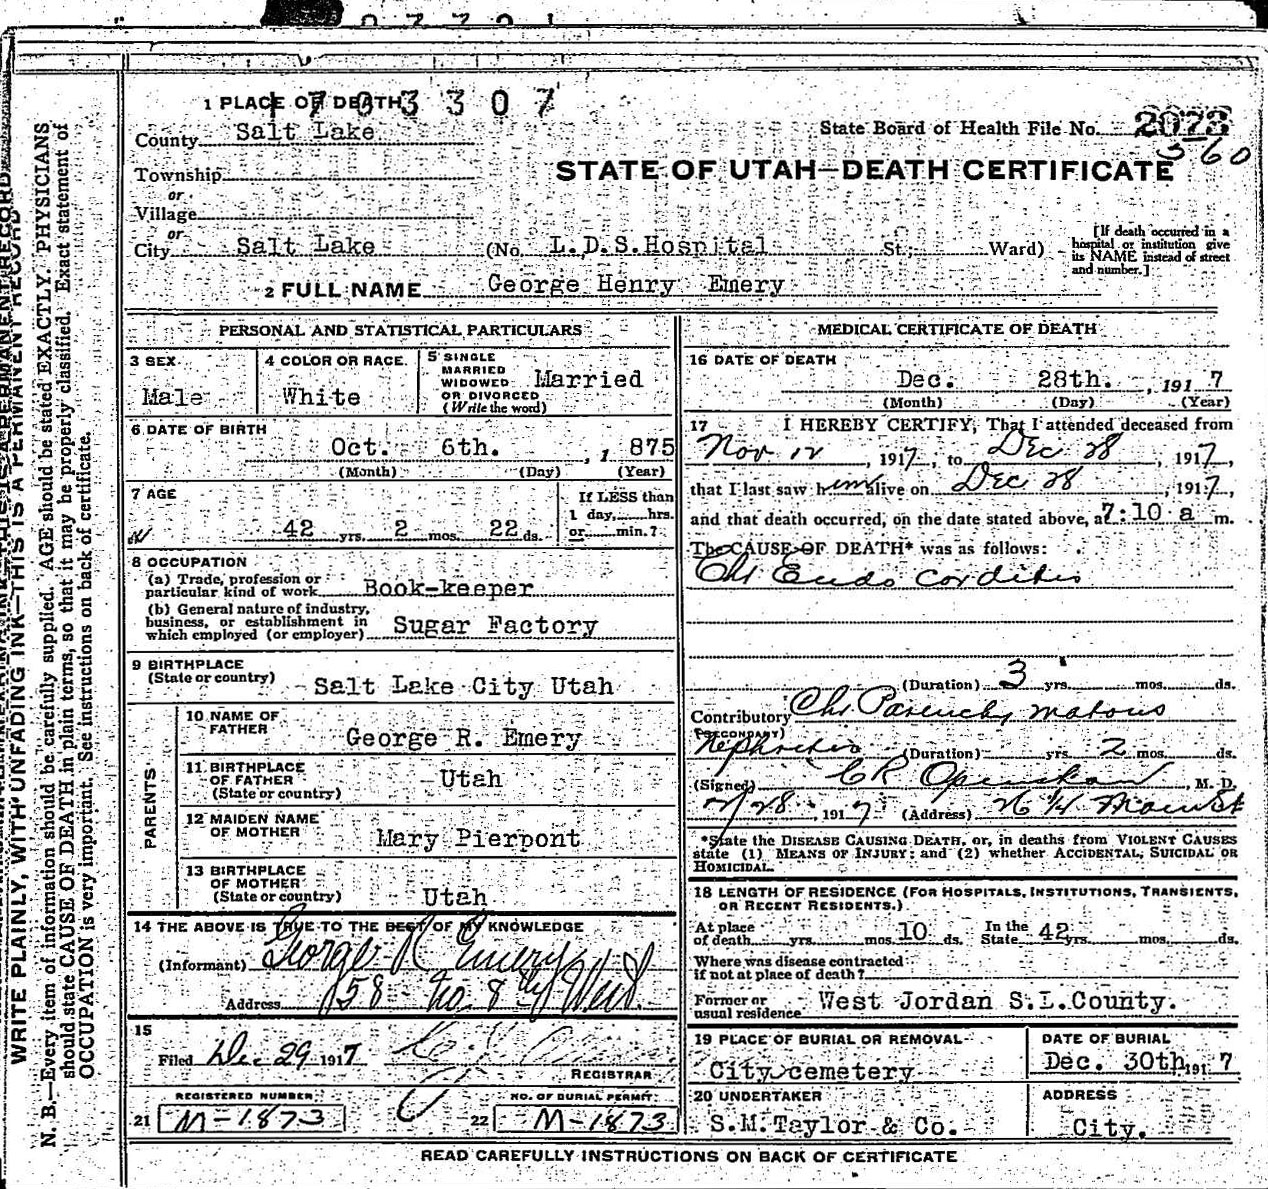 1703307
1 PLACE OF DEATH
County Salt Lake
State Board of Health File No. 2073
560
Township
STATE OF UTAH—DEATH CERTIFICATE
or
Village
or
City Salt Lake (No. L.D.S.Hospital St; Ward)
[If death occurred in a
hospital or institution give
its NAME instead of street
and number.]
2 FULL NAME George Henry Emery
PERSONAL AND STATISTICAL PARTICULARS
3 SEX
Male
4 COLOR OR RACE
White
5 SINGLE
MARRIED
WIDOWED
OR DIVORCED
(Write the word)
Married
6 DATE OF BIRTH
Oct. 6th. , 1 875
(Month) (Day) (Year)
7 AGE
42 yrs. 2 mos. 22 ds.
If LESS than
1 day, hrs.
or min.?
8 OCCUPATION
(a) Trade, profession or
particular kind of work Book-keeper
(b) General nature of industry,
business, or establishment in
which employed (or employer) Sugar Factory
9 BIRTHPLACE
(State or country) Salt Lake City Utah
PARENTS
10 NAME OF
FATHER George R. Emery
11 BIRTHPLACE
OF FATHER
(State or country) Utah
12 MAIDEN NAME
OF MOTHER Mary Pierpont
13 BIRTHPLACE
OF MOTHER
(State or country) Utah
14 THE ABOVE IS TRUE TO THE BEST OF MY KNOWLEDGE
(Informant) George R Emery
Address 158 No. 8th West
15
Filed Dec 29 1917
REGISTRAR
REGISTERED NUMBER
21 M-1873
NO. OF BURIAL PERMIT
22 M-1873
MEDICAL CERTIFICATE OF DEATH
16 DATE OF DEATH
Dec. 28th. , 191 7
(Month) (Day) (Year)
17 I HEREBY CERTIFY, That I attended deceased from
Nov 12 , 1917, to Dec 28 , 1917,
that I last saw him alive on Dec 28 , 1917,
and that death occurred, on the date stated above, at 7:10 a m.
The CAUSE OF DEATH* was as follows:
Chr Endo carditis
(Duration) 3 yrs. mos. ds.
Contributory Chr Parenchymatous
(SECONDARY)
Nephritis (Duration) yrs. 2 mos. ds.
(Signed) C R Openshaw, M. D.
12/28 1917 (Address)
*State the DISEASE CAUSING DEATH, or, in deaths from VIOLENT CAUSES
state (1) MEANS OF INJURY; and (2) whether ACCIDENTAL, SUICIDAL OR
HOMICIDAL.
18 LENGTH OF RESIDENCE (FOR HOSPITALS, INSTITUTIONS, TRANSIENTS,
OR RECENT RESIDENTS.)
At place
of death yrs. mos. 10 ds.
In the
State 42 yrs. mos. ds.
Where was disease contracted
if not at place of death?
Former or
usual residence West Jordan S.L.County.
19 PLACE OF BURIAL OR REMOVAL
City cemetery
DATE OF BURIAL
Dec. 30th, 191 7
20 UNDERTAKER
S.M.Taylor & Co.
ADDRESS
City.
READ CAREFULLY INSTRUCTIONS ON BACK OF CERTIFICATE
WRITE PLAINLY, WITH UNFADING INK—THIS IS A PERMANENT RECORD
N. B.—Every item of information should be carefully supplied. AGE should be stated EXACTLY. PHYSICIANS
should state CAUSE OF DEATH in plain terms, so that it may be properly classified. Exact statement of
OCCUPATION is very important. See instructions on back of certificate.